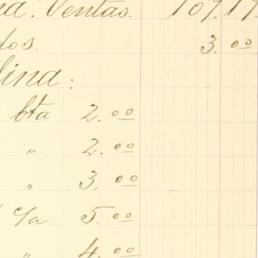 na. Ventas. 109.19
dos. 3.00
lina:
bta 2.00
" 2.00
" 3.00
c/a 5.00
" 4.00